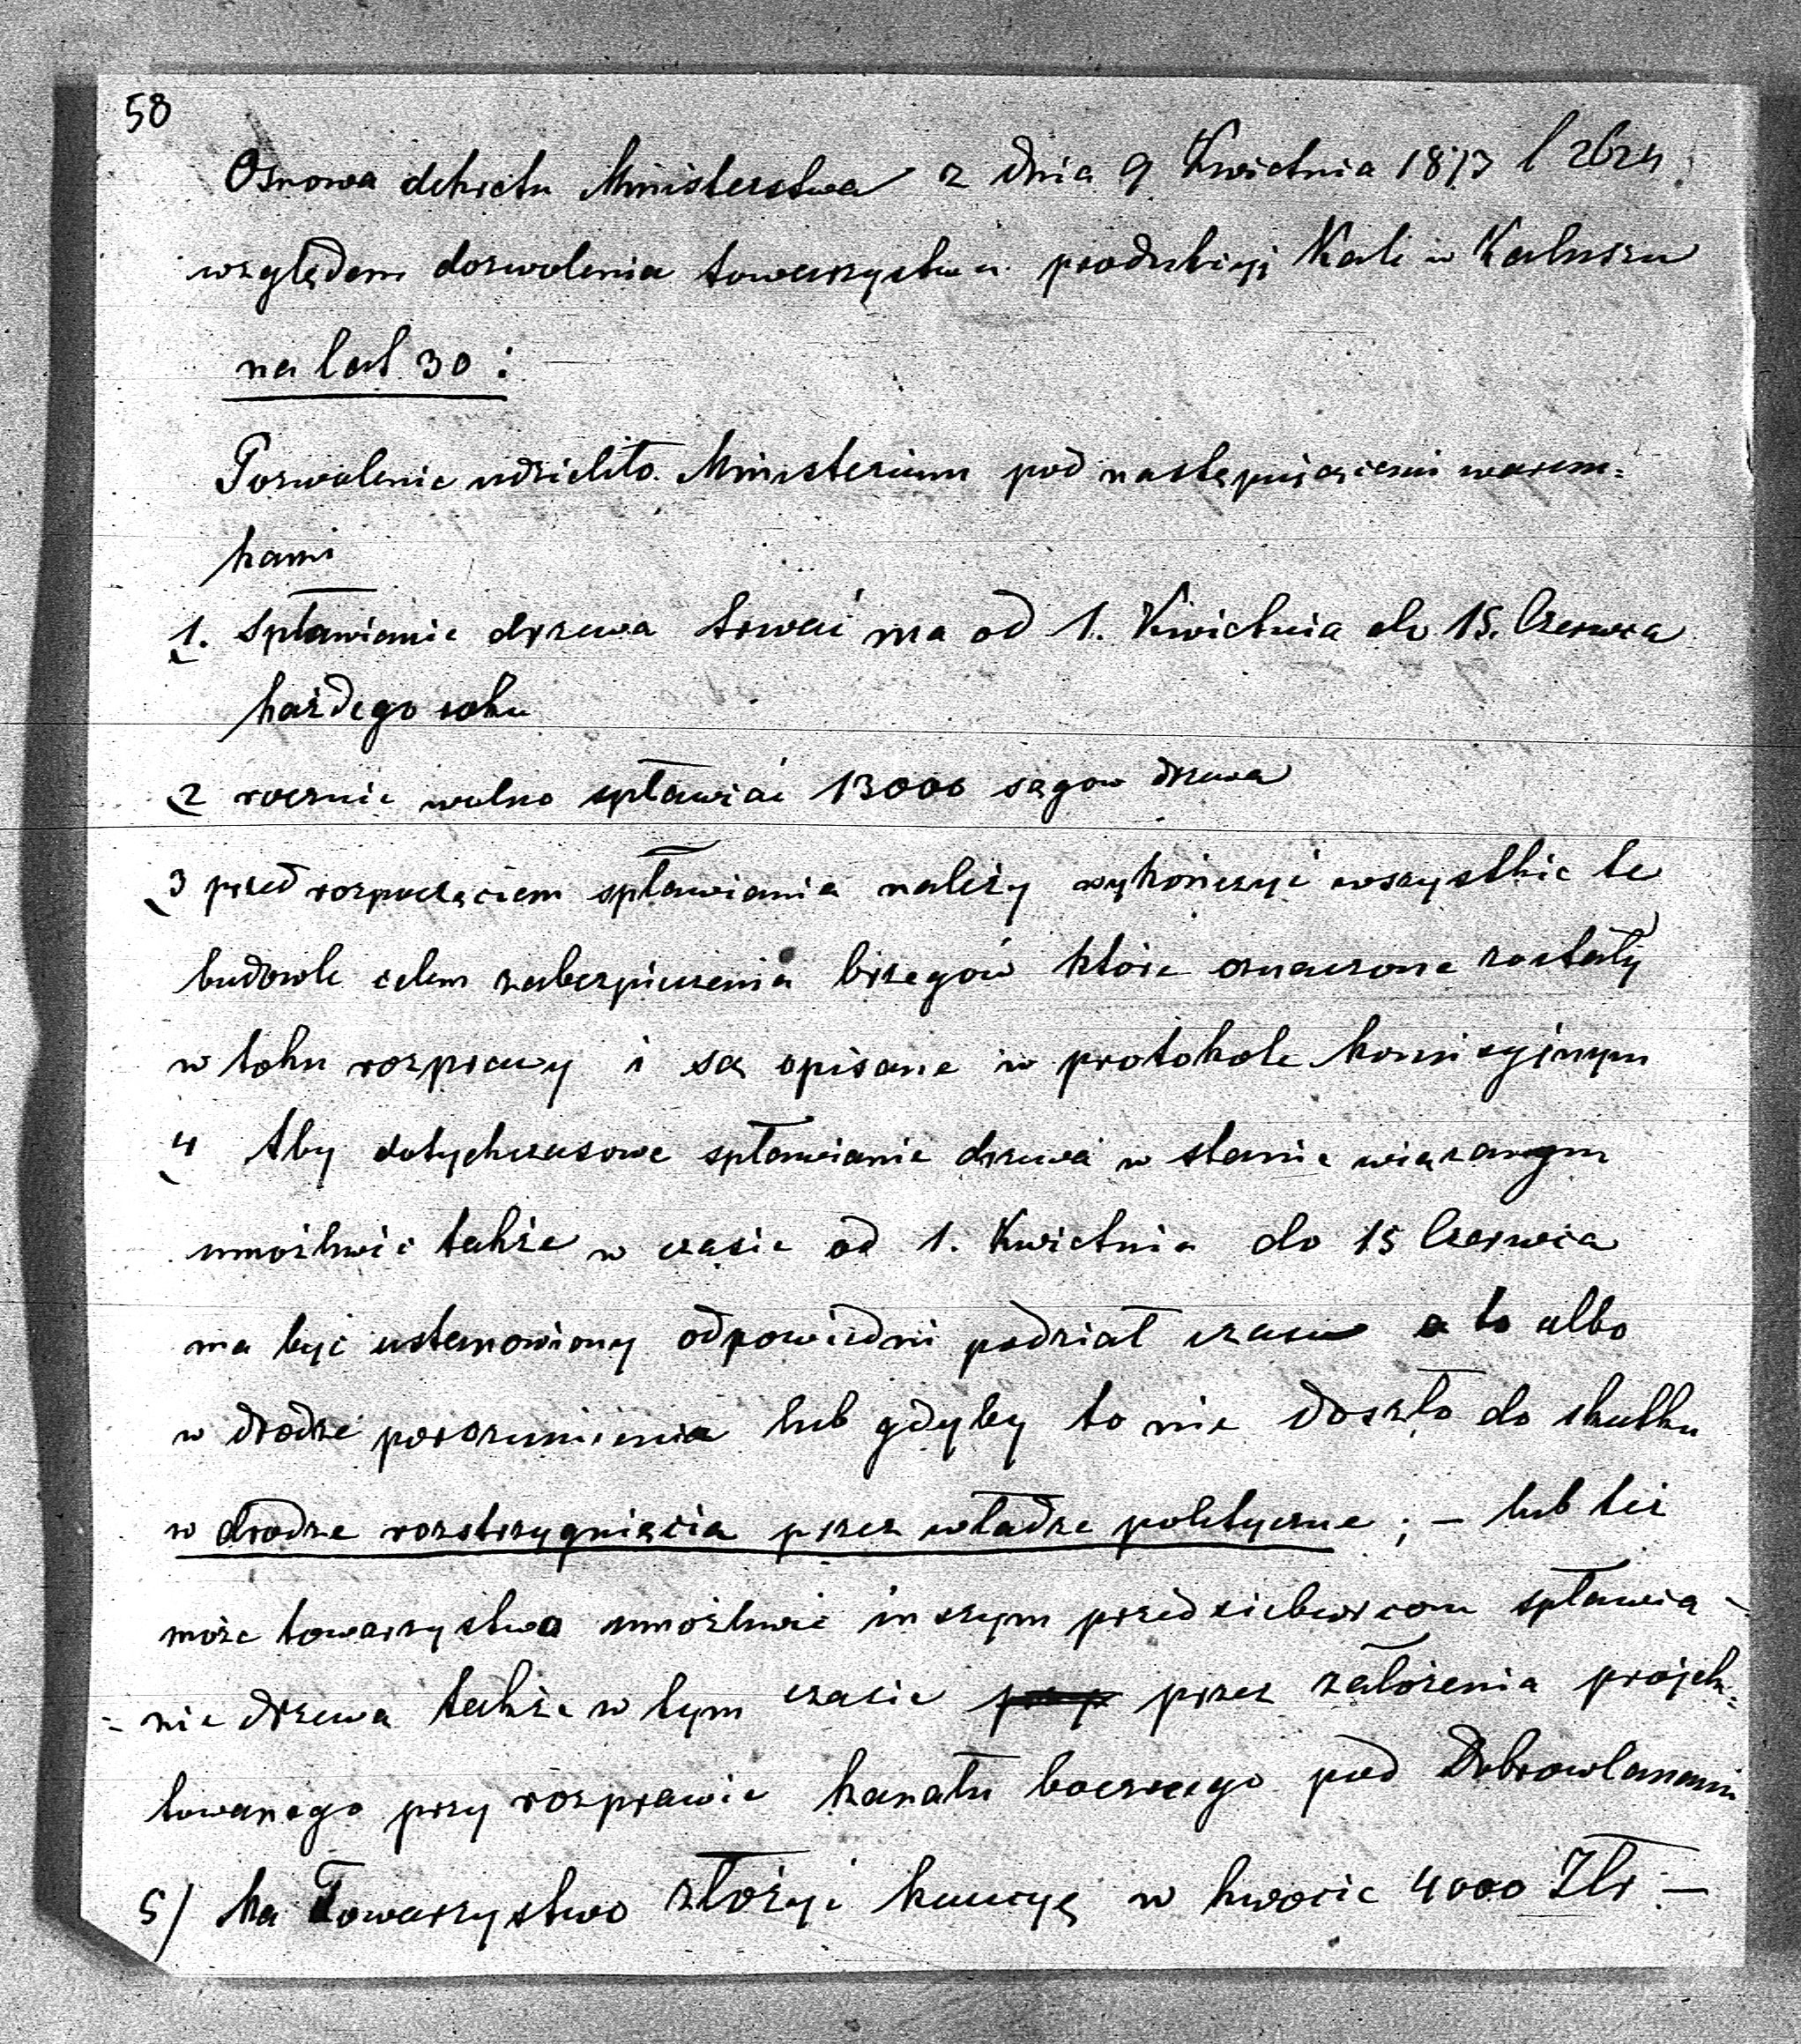 58
Osnowa dekretu Ministerstwa z dnia 9 Kwietnia 1873 l 2624
względem dozwolenia towarzystwu produkcyi Kali w Kałuszu
na lat 30:
Pozwolenie udzieliło Ministerium pod następującemi warun=
kami
1. Spławianie drzewa trwać ma od 1. Kwietnia do 15. Czerwca
każdego roku
2 rocznie wolno spławiać 13000 sągow drzewa
3 przed rozpoczęciem spławiania należy wykończyć wszystkie te
budowle celem zabezpieczenia brzegów które oznaczone zostały
w toku rozprawy i są opisane w protokole komisyjnym
4 Aby dotychczasowe spławianie drzewa w stanie wiązanym
umożliwić także w czasie od 1. Kwietnia do 15 Czerwca
ma być ustanowiony odpowiedni podział czasu a to albo
w drodze porozumienia lub gdyby to nie doszło do skutku
w drodze rozstrzygnięcia przez władze polityczne; – lub też
może towarzystwo umożliwić inszym przedsiebiorcom spławia-
- nie drzewa także w tym czasie przez założenia projek=
towanego przy rozprawie kanału bocznego pod Dobrowlanami
5) Ma Towarzystwo złożyć kaucyę w kwocie 4000 Złr –